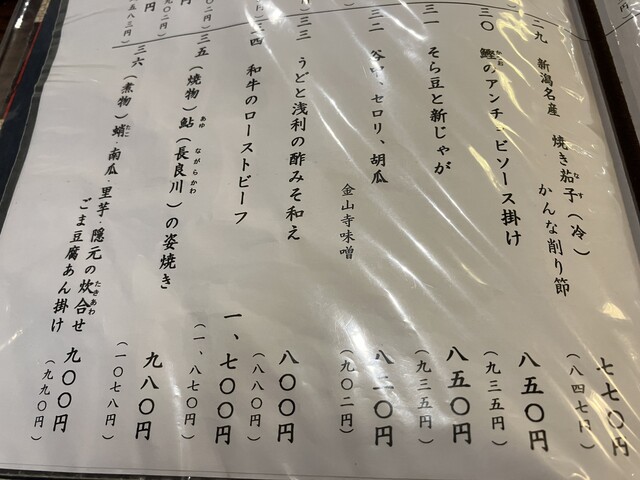 二九 新潟名産 焼き茄子(冷)
かんな削り節
七七〇円
(八四七円)
三〇 鰹のアンチョビソース掛け
八五〇円
(九三五円)
三一 そら豆と新じゃが
八五〇円
(九三五円)
三二 谷中、セロリ、胡瓜
金山寺味噌
八二〇円
(九〇二円)
三三 うどと浅利の酢みそ和え
八〇〇円
(八八〇円)
三四 和牛のローストビーフ
一、七〇〇円
(一、八七〇円)
三五 (焼物) 鮎(長良川)の姿焼き
あゆ ながらかわ
九八〇円
(一〇七八円)
三六 (煮物) 蛸・南瓜・里芋・隠元の炊合せ
たこ たきあわ
ごま豆腐あん掛け
九〇〇円
(九九〇円)